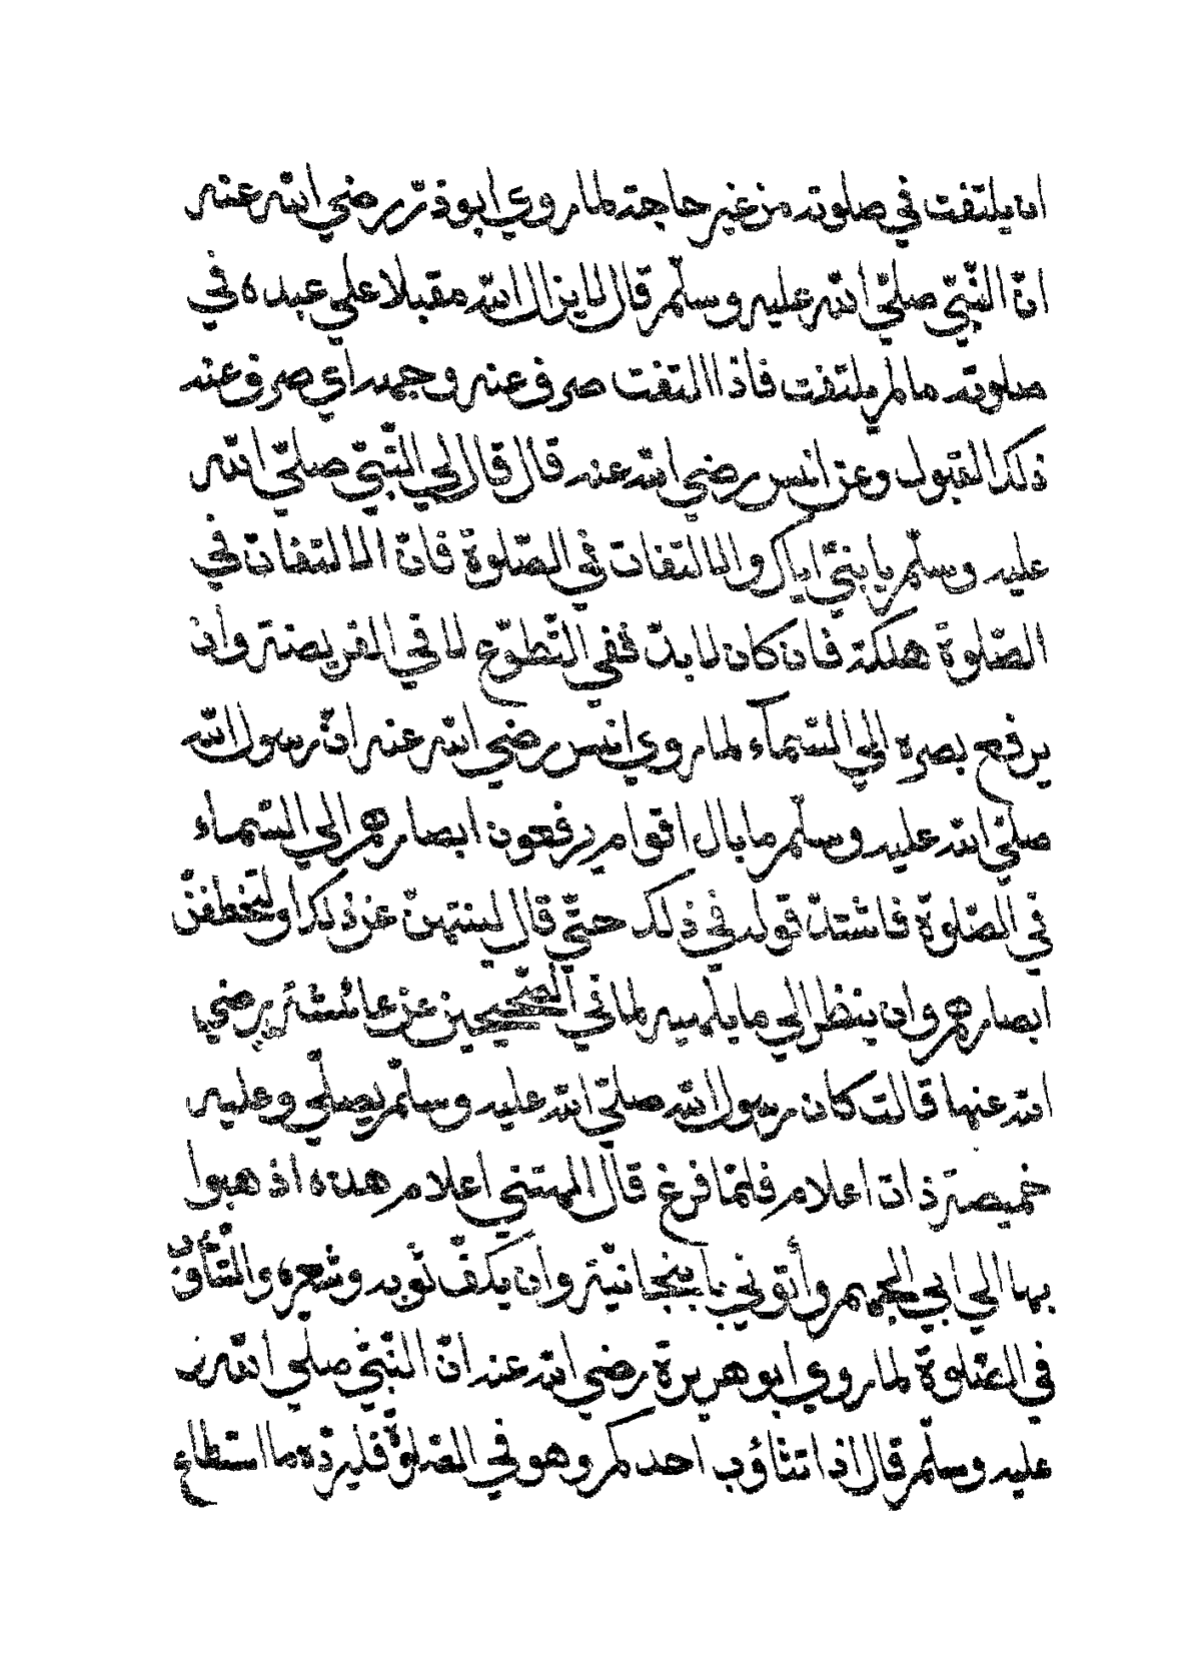 ان يلتفت في صلوته من غير حاجة لما روي ابو ذرّ رضي الله عنه
انّ النّبيّ صلّي الله عليه وسلّم قال لا يزال الله مقبلا علي عبده في
صلوته ما لم يلتفت فاذا التفت صرف عنه وجهه اي صرف عنه
ذلك القبول وعن انس رضي الله عنه قال قال لي النّبيّ صلّي الله
عليه وسلّم يا بنيّ اياك والالتفات في الصّلوة فانّ الالتفات في
الصّلوة هلكة فان كان لا بدّ ففي التّطوّع لا في الفريضة وان
يرفع بصره الي السّماء لما روي انس رضي الله عنه انّ رسول الله
صلّي الله عليه وسلّم ما بال اقوام يرفعون ابصارهم الي السّماء
في الصّلوة فاشتدّ قوله في ذلك حتّي قال لينتهنّ عن ذلك او لتخطفنّ
ابصارهم وان ينظر الي ما يلهيه لما في الصّحيحين عن عائشة رضي
الله عنها قالت كان رسول الله صلّي الله عليه وسلّم يصلّي وعليه
خميصة ذات اعلام فلمّا فرغ قال الهتني اعلام هذه اذهبوا
بها الي ابي الجهم وأتوني بابنجانيّة وان يكفّ ثوبه وشعره والتّثاؤب
في الصّلوة لما روي ابو هريرة رضي الله عنه انّ النّبيّ صلّي الله
عليه وسلّم قال اذا تثاؤب احدكم وهو في الصّلوة فليردّه ما استطاع